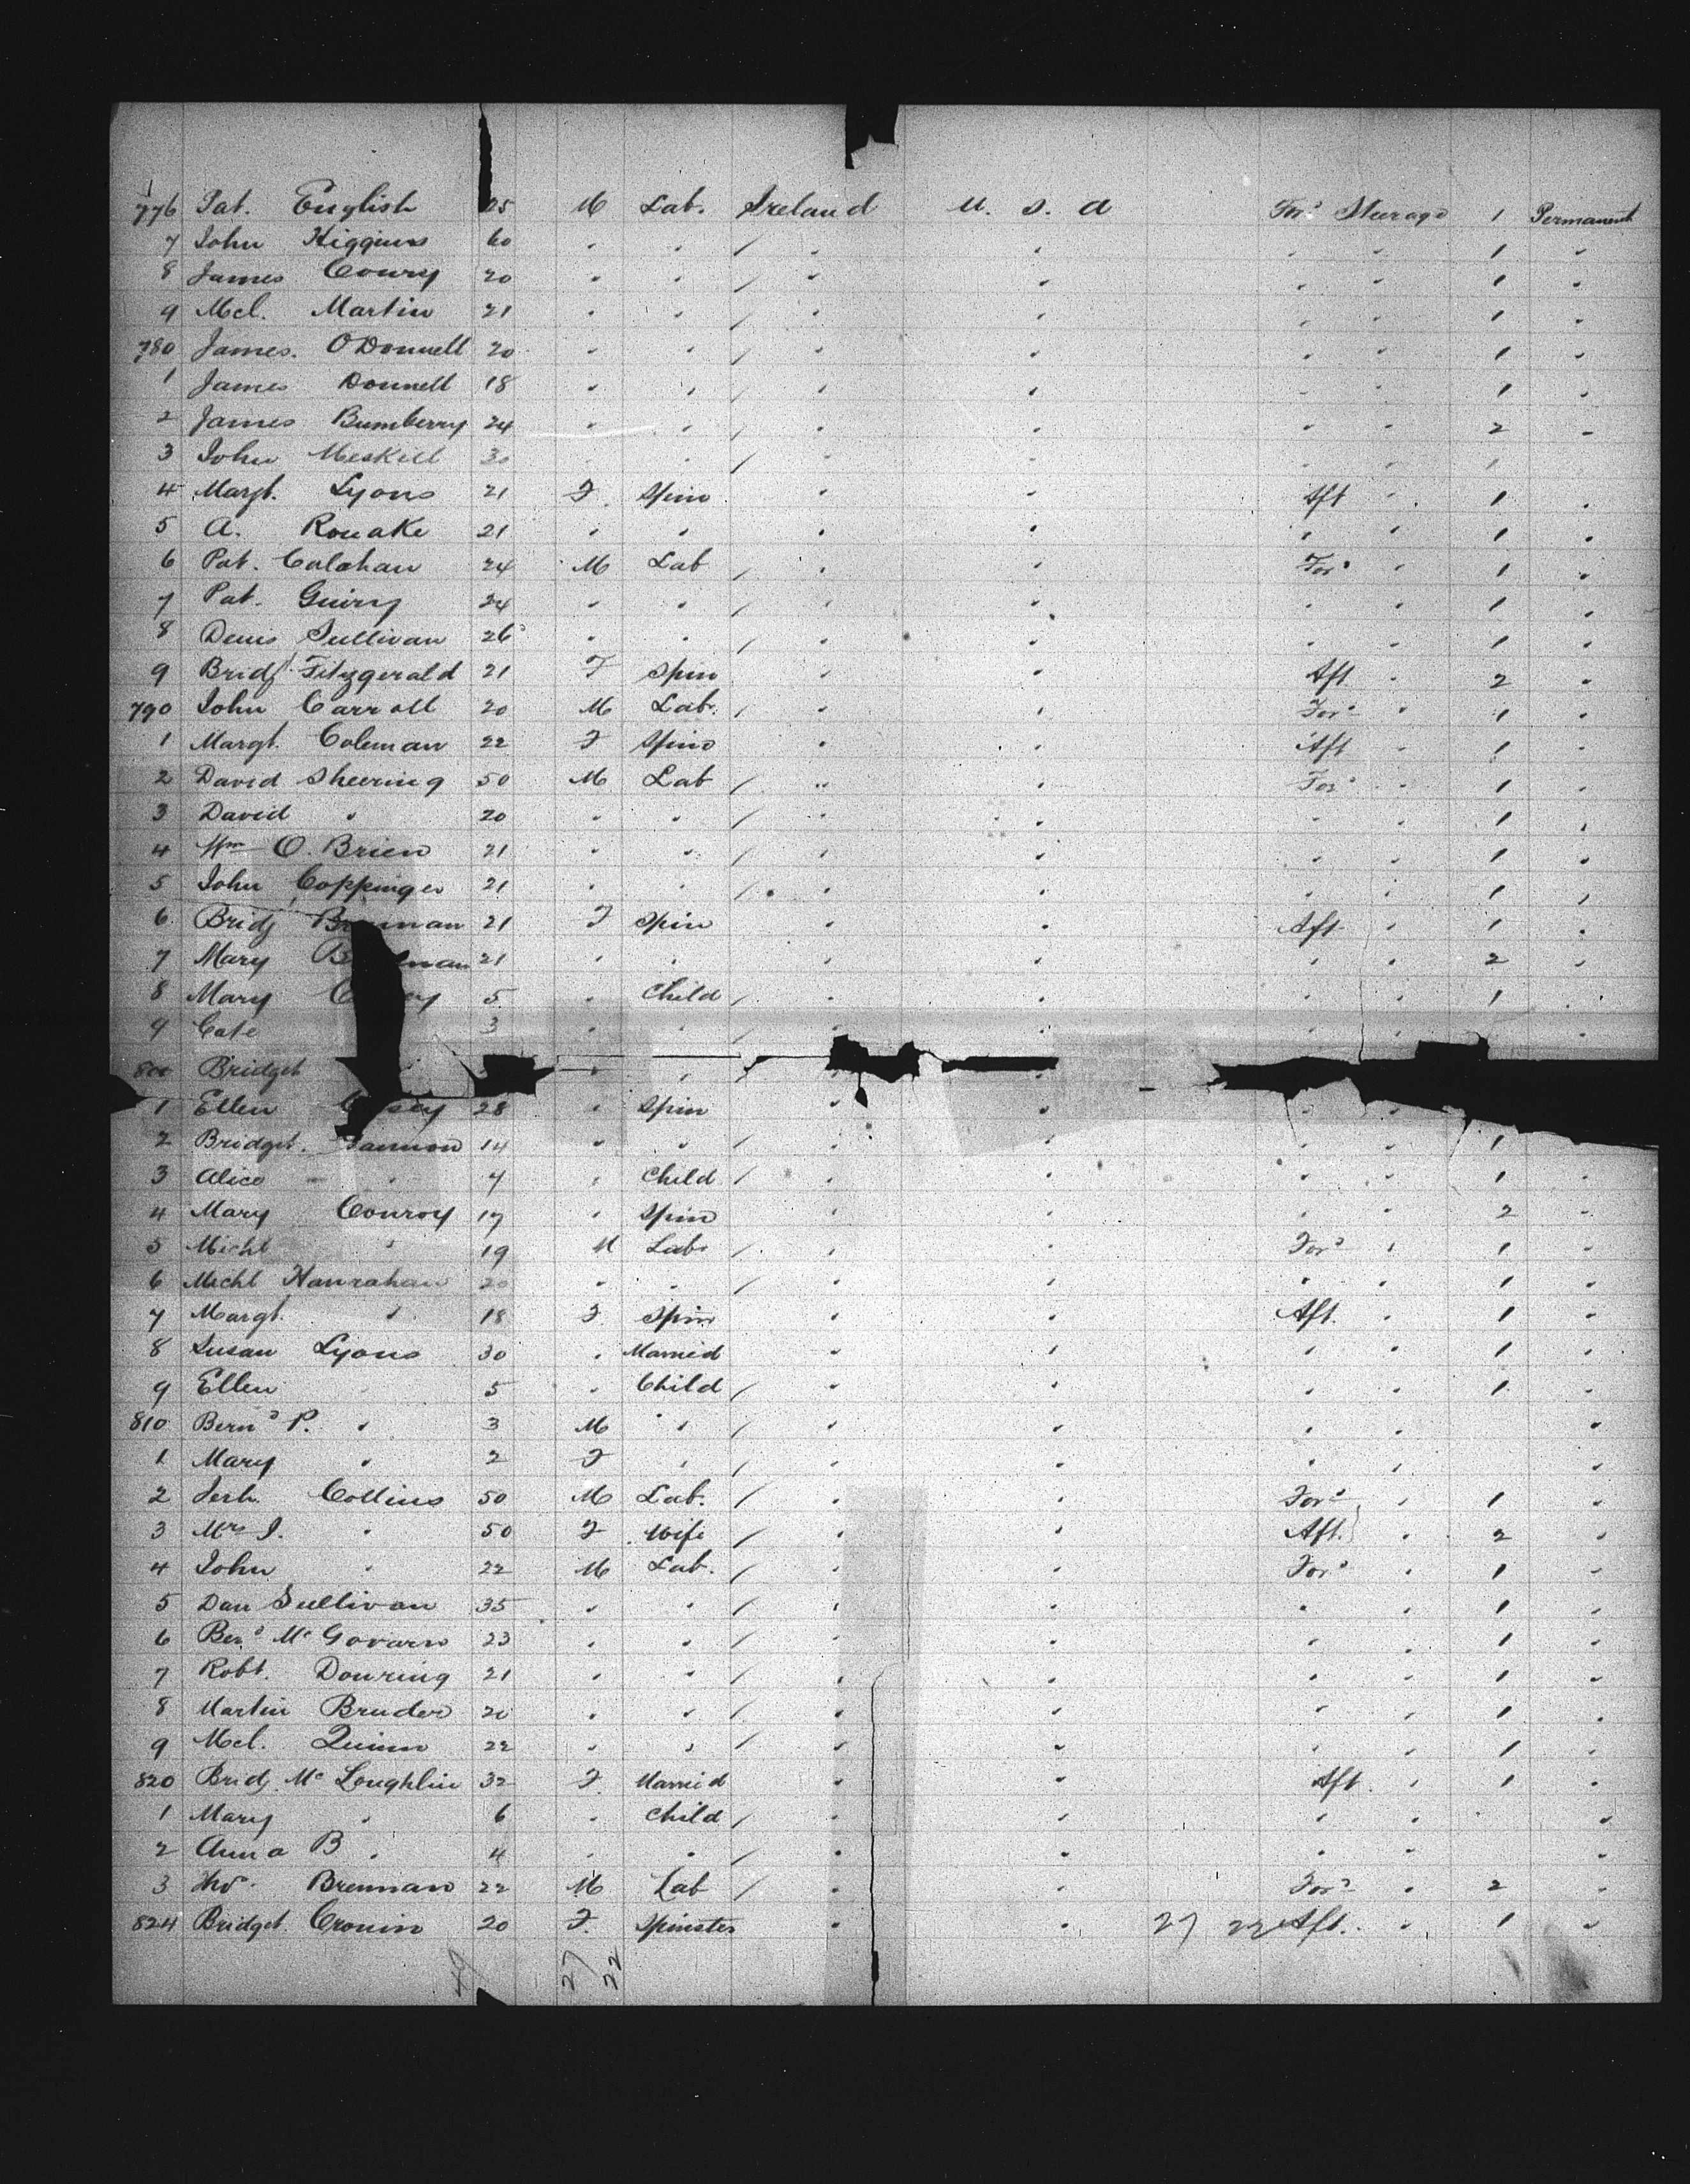 776 Pat. English 25 M Lab. Ireland U. S. A For^d Steerage 1 Permanent
7 John Higgins 60 " " / " " " " 1 "
8 James Coury 20 " " / " " " " 1 "
9 Mcl. Martin 21 " " / " " " " 1 "
780 James. O'Donnell 20 " " / " " " " 1 "
1 James Donnell 18 " " / " " " " 1 "
2 James Bumberry 24 " " / " " " " 2 "
3 John Meskill 30 " " / " " " " 1
4 Margt. Lyons 21 F. Spin " " Aft " 1 "
5 A. Rouake 21 " " " " " " 1 "
6 Pat. Calahan 24 M Lab / " " For^d " 1 "
7 Pat. Guiry 24 " " / " " " " 1 "
8 Denis Sullivan 26 " " / " " " " 1 "
9 Bridg. Fitzgerald 21 F Spin " " Aft " 2 "
790 John Carroll 20 M Lab. / " " For^d " 1 "
1 Margt. Coleman 22 F Spin " " Aft " 1 "
2 David Sheering 50 M Lab / " " For^d " 1 "
3 David " 20 " " / " " " " 1 "
4 Wm O. Brien 21 " " / " " " " 1 "
5 John Coppinger 21 " " / " " " " 1 "
6 Bridg 21 F Spin " " Aft " 1 "
7 Mary 21 " " " " " " 2 "
8 Mary 5 " Child / " " " " 1 "
9 Cate 3 " " / " " " " "
800 Bridget " " / " "
1 Ellen 28 " Spin " " " "
2 Bridget. 14 " " / " " " " 1
3 Alice " 4 " Child / " " " " 1 "
4 Mary Conroy 17 " Spin " " " " 2 "
5 Michl " 19 M Lab. / " " For^d " 1 "
6 Michl Hanrahan 20 " " / " " " " 1 "
7 Margt. " 18 F Spin " " Aft. " 1 "
8 Susan Lyons 30 " Married " " " " 1 "
9 Ellen " 5 " Child / " " " " 1 "
810 Bern^d P. " 3 M " / " " " " "
1 Mary " 2 F " / " " " " "
2 Jerh. Collins 50 M Lab. / " " For^d " 1 "
3 Mrs J. " 50 F Wife / " " Aft. " 2 "
4 John " 22 M Lab. / " " For^d " 1 "
5 Dan Sullivan 35 " " / " " " " 1 "
6 Ber^d McGovarn 23 " " / " " " " 1 "
7 Robt. Douring 21 " " / " " " " 1 "
8 Martin Bruder 20 " " / " " " " 1 "
9 Mcl. Quinn 22 " " / " " " " 1 "
820 Bridg. McLoughlin 32 F Married " " Aft. " 1 "
1 Mary " 6 " Child / " " " " "
2 Anna B " 4 " " / " " " " "
3 Brennan 22 M Lab / " " For^d " 2 "
824 Bridget. Cronin 20 F. Spinster " " 27 22 Aft. " 1 "
49 27 22